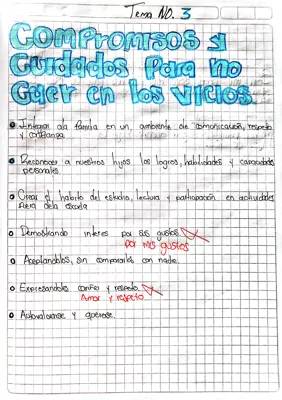 Tema NO. 3
Compromisos y
Cuidados Para no
Caer en los Vicios.
Integrar ala familia en un, ambiente de comunicación, respeto
y confianza
Reconocer a nuestros hijos los logros, habilidades y capacidades
personales
Crear el habito del estudio, lectura y participación en actividades
fuera dela escuela
Demostrando interes por sus gustos.
por mis gustos
Aceptandolos, sin compararlos con nadie.
Expresandoles cariño y respeto.
Amor y respeto
Autovalorarse y